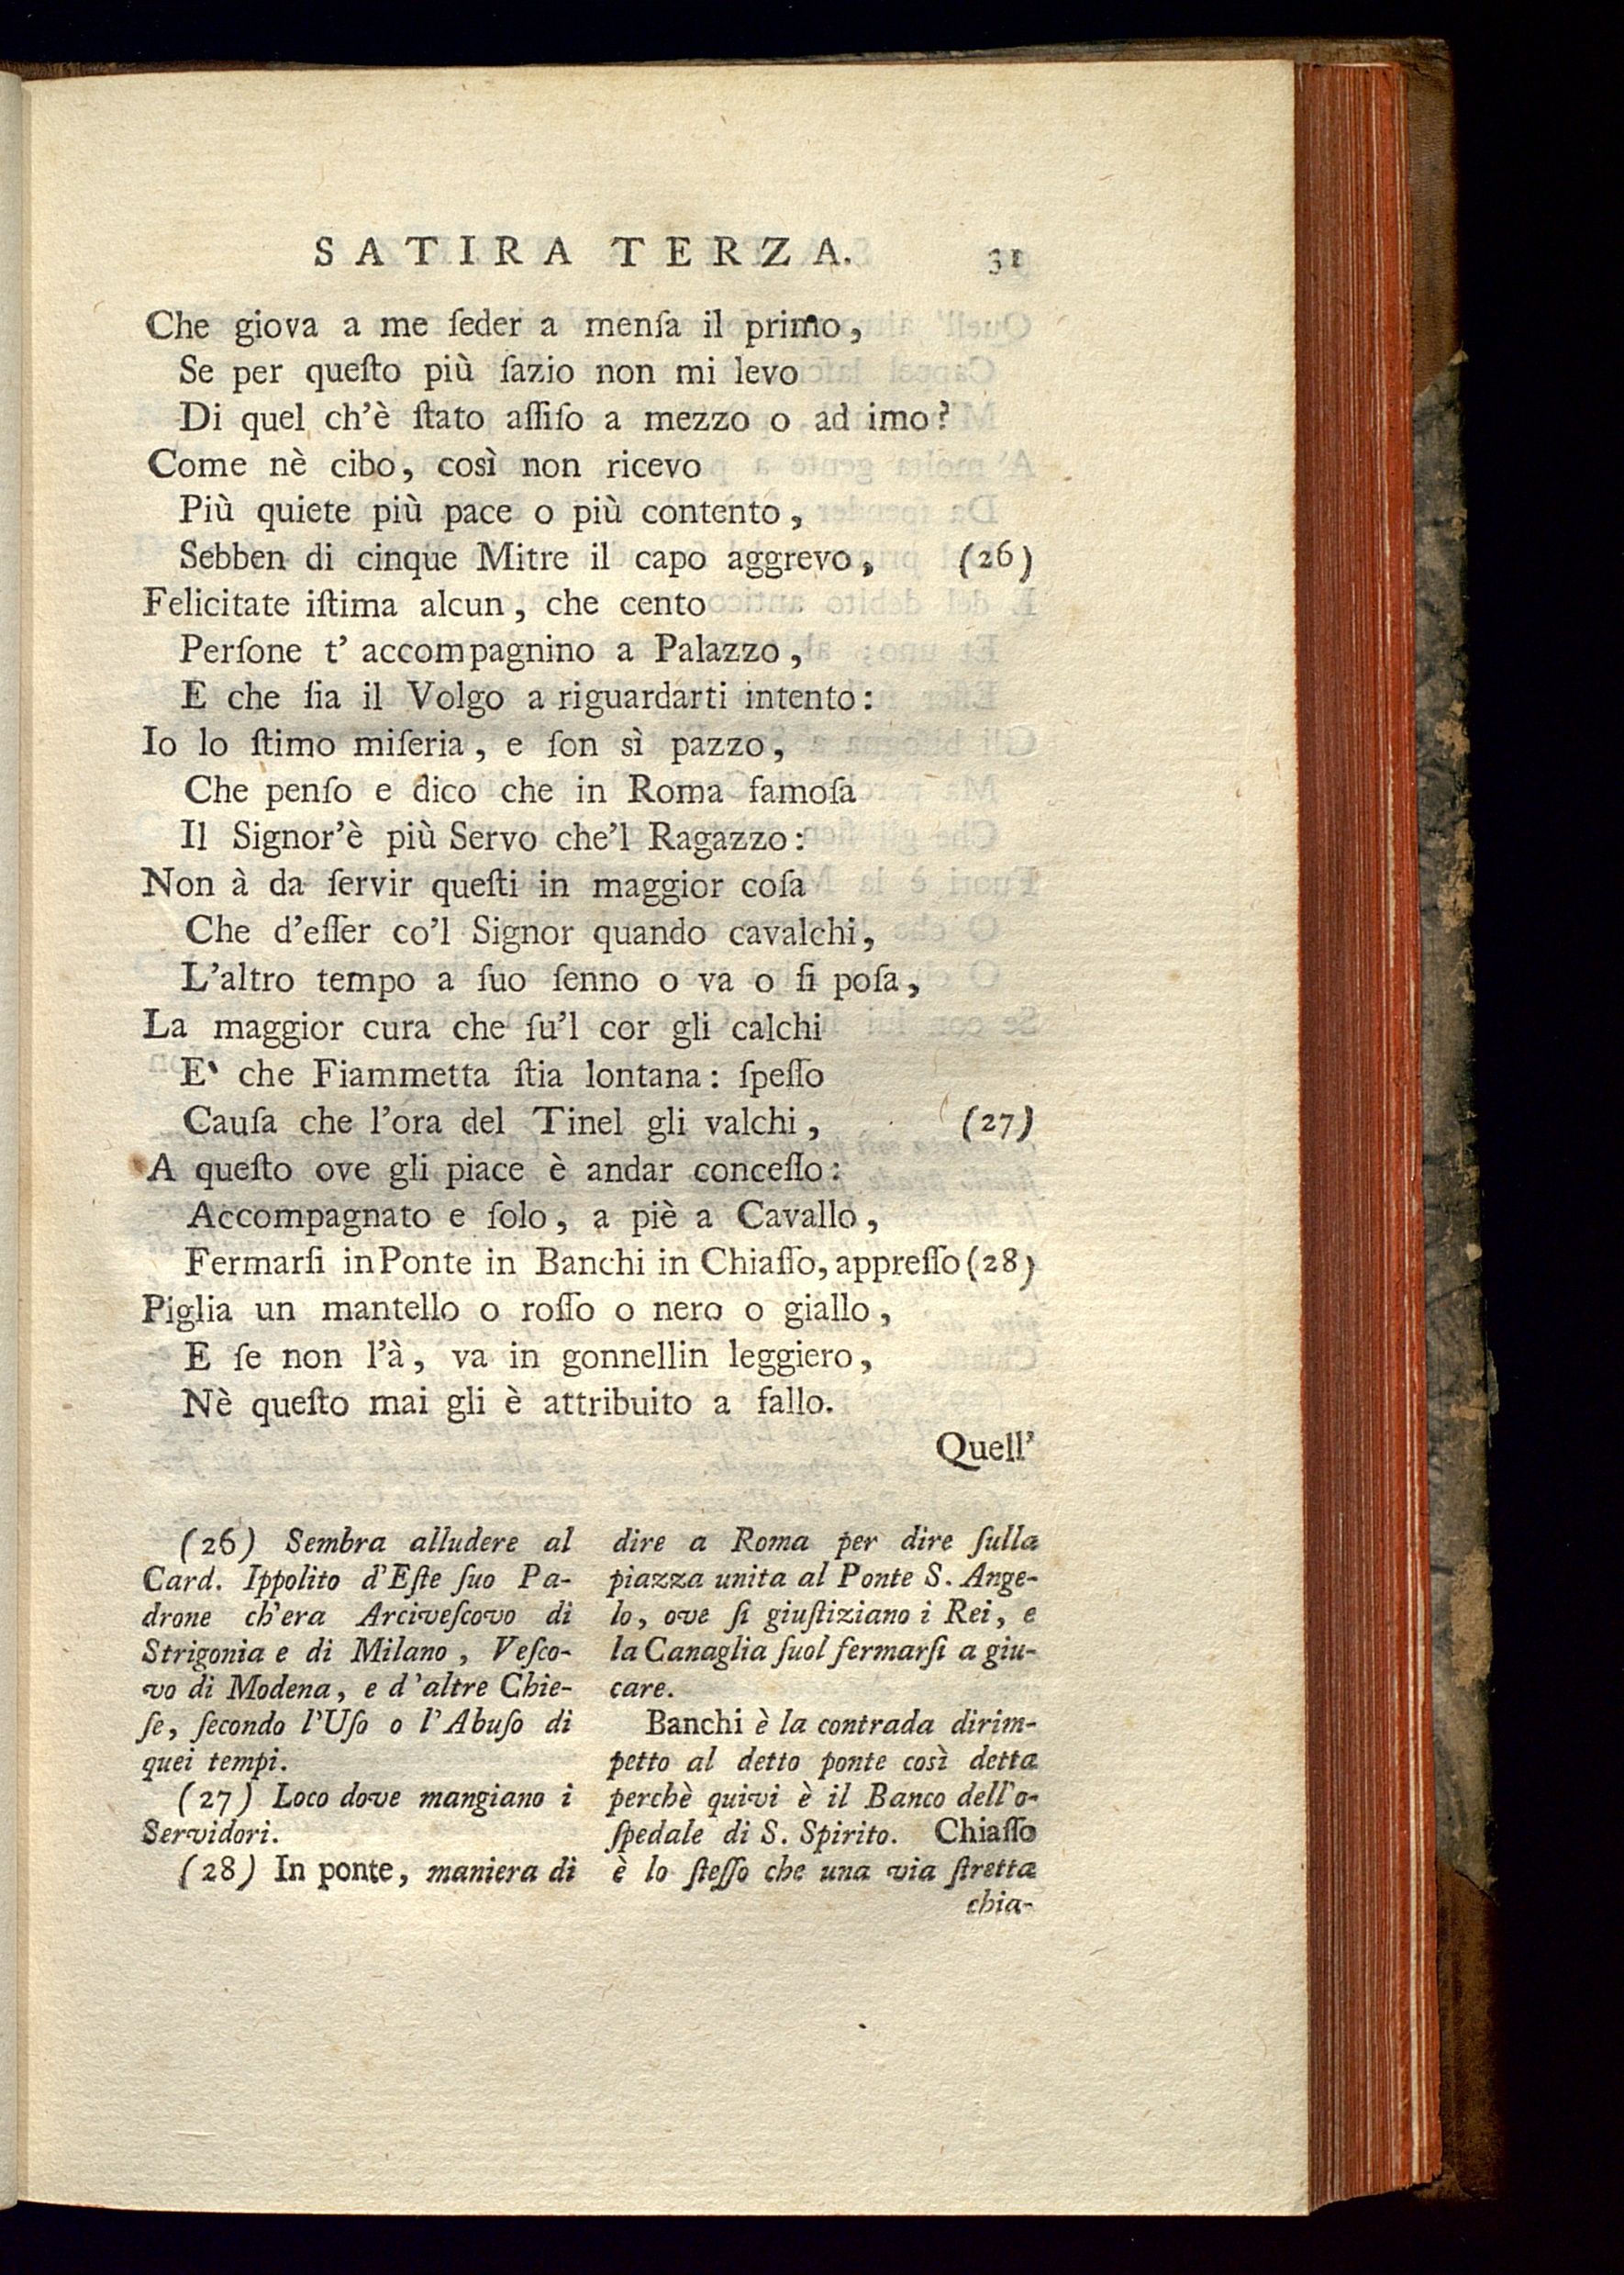 SATIRA TERZA. 31
Che giova a me ſeder a menſa il primo,
Se per queſto più ſazio non mi levo
Di quel ch'è ſtato aſſiſo a mezzo o ad imo?
Come nè cibo, così non ricevo
Più quiete più pace o più contento,
Sebben di cinque Mitre il capo aggrevo, (26)
Felicitate iſtima alcun, che cento
Perſone t' accompagnino a Palazzo,
E che ſia il Volgo a riguardarti intento:
Io lo ſtimo miſeria, e ſon sì pazzo,
Che penſo e dico che in Roma famoſa
Il Signor'è più Servo che'l Ragazzo:
Non à da ſervir queſti in maggior coſa
Che d'eſſer co'l Signor quando cavalchi,
L'altro tempo a ſuo ſenno o va o ſi poſa,
La maggior cura che ſu'l cor gli calchi
E' che Fiammetta ſtia lontana: ſpeſſo
Cauſa che l'ora del Tinel gli valchi, (27)
A queſto ove gli piace è andar conceſſo:
Accompagnato e ſolo, a piè a Cavallo,
Fermarſi in Ponte in Banchi in Chiaſſo, appreſſo (28)
Piglia un mantello o roſſo o nero o giallo,
E ſe non l'à, va in gonnellin leggiero,
Nè queſto mai gli è attribuito a fallo.
Quell'
(26) Sembra alludere al
Card. Ippolito d'Eſte ſuo Pa-
drone ch'era Arciveſcovo di
Strigonia e di Milano, Veſco-
vo di Modena, e d'altre Chie-
ſe, ſecondo l'Uſo o l'Abuſo di
quei tempi.
(27) Loco dove mangiano i
Servidori.
(28) In ponte, maniera di
dire a Roma per dire ſulla
piazza unita al Ponte S. Ange-
lo, ove ſi giuſtiziano i Rei, e
la Canaglia ſuol fermarſi a giu-
care.
Banchi è la contrada dirim-
petto al detto ponte così detta
perchè quivi è il Banco dell'o-
ſpedale di S. Spirito. Chiaſſo
è lo ſteſſo che una via ſtretta
chia-